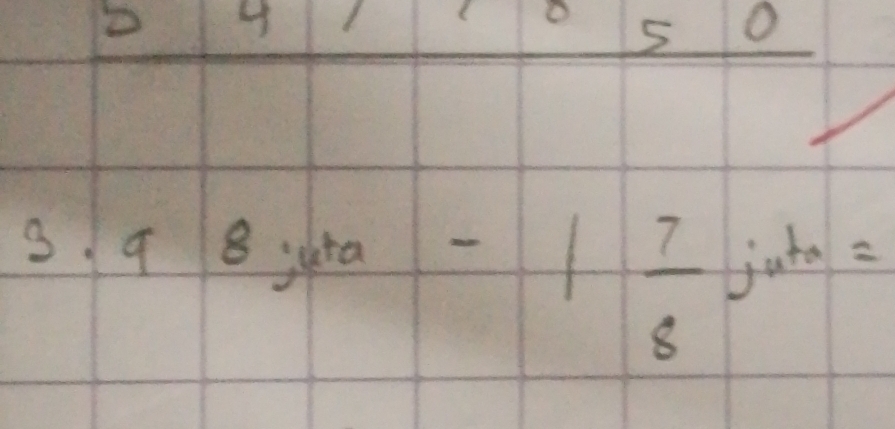 5 0
3. 9 8 juta - 1 7/8 juta =